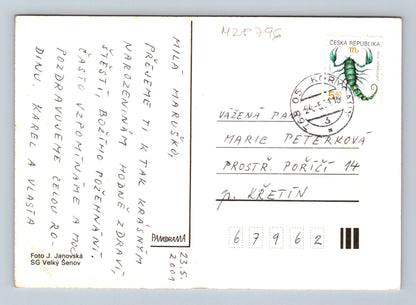 MZ8796
MILÁ MARUŠKO,
PŘEJEME TI K TAK KRÁSNÝM
NAROZENINÁM HODNĚ ZDRAVÍ,
ŠTĚSTÍ, BOŽÍHO POŽEHNÁNÍ.
ČASTO VZPOMÍNÁME A MOC
POZDRAVUJEME CELOU RO-
DINU. KAREL A VLASTA
23.5.
2001
PANORAMA
Foto J. Janovská
SG Velký Šenov
ČESKÁ REPUBLIKA
VÁŽENÁ PANÍ
MARIE PETERKOVÁ
PROSTŘ. POŘÍČÍ 14
p. KŘETÍN
67962